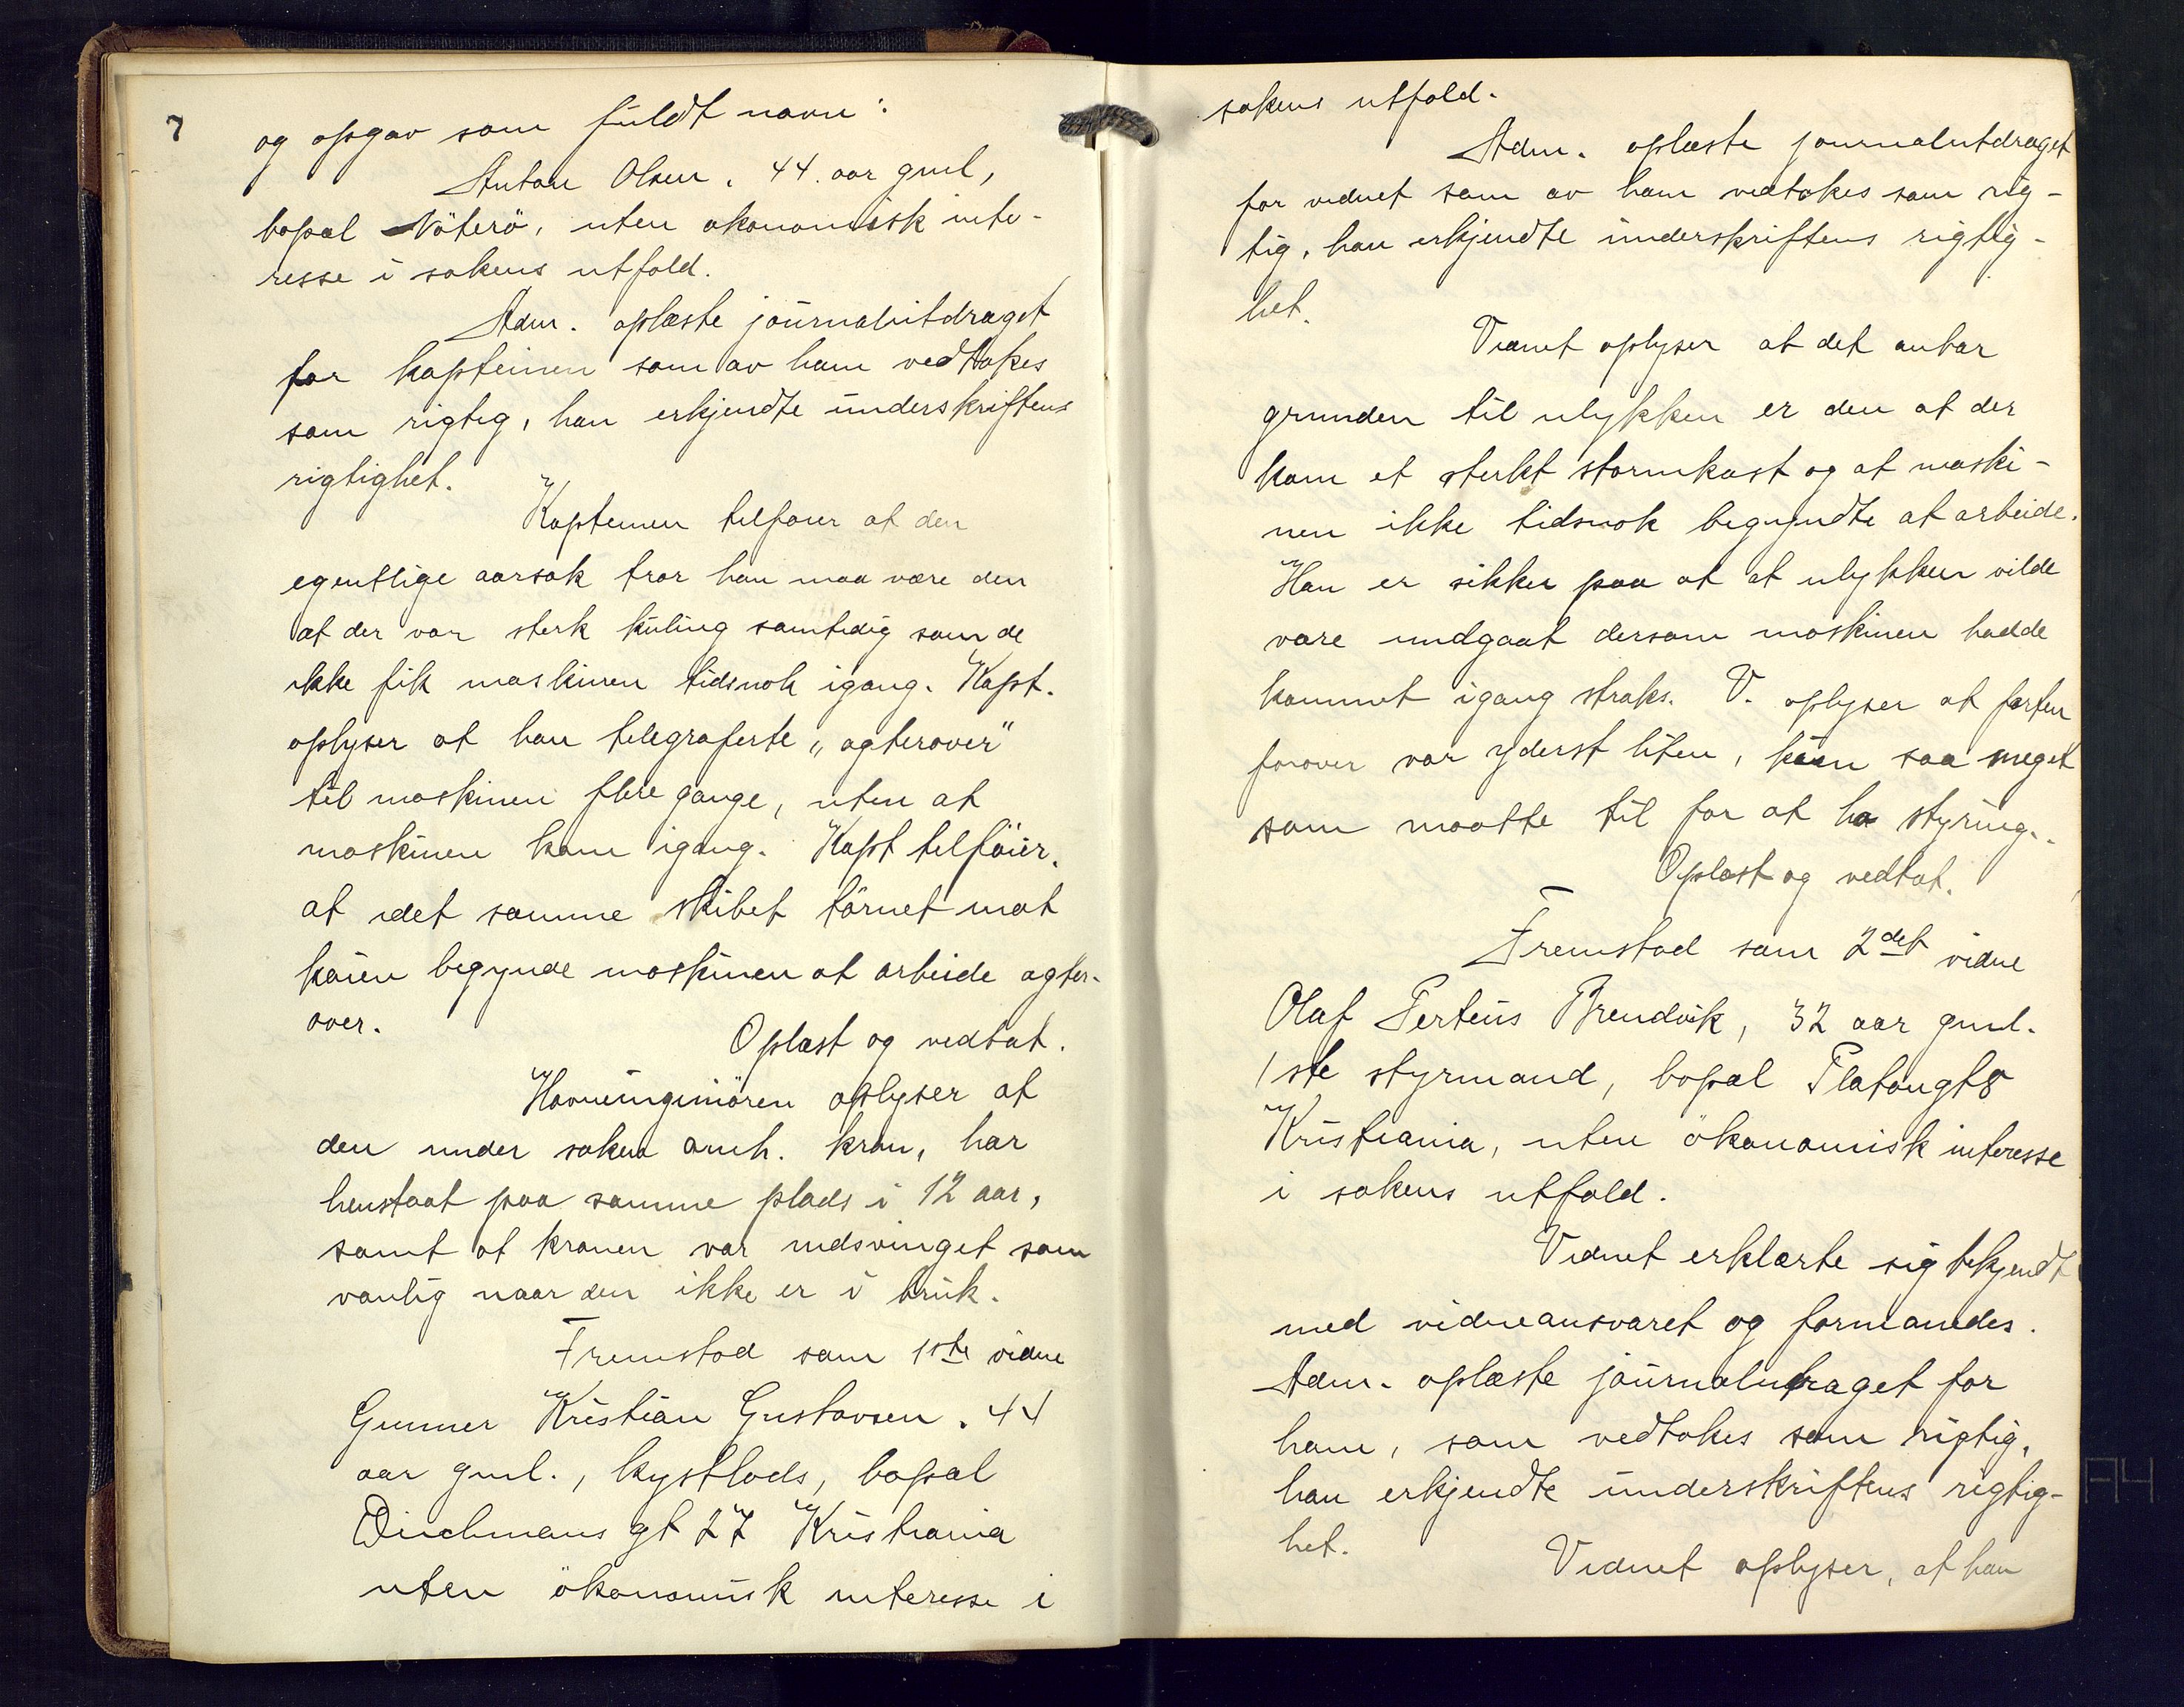 7
og opgav som fuldt navn:
Anton Olsen, 44 aar gml,
bopæl Nöterö, uten økonomisk inte-
resse i sakens utfald.
Adm. oplæste journalutdraget
for kapteinen som av ham vedtokes
som rigtig, han erkjendte underskriftens
rigtighet.
Kapteinen tilføier at den
egentlige aarsak tror han maa være den
at der var sterk kuling samtidig som de
ikke fik maskinen tidsnok igang. Kapt.
oplyser at han telegraferte „agterover"
til maskinen flere gange, uten at
maskinen kom igang. Kapt tilföier,
at idet samme skibet törnet mot
kaien begynde maskinen at arbeide agter-
over.
Oplæst og vedtat.
Havneingeniören oplyser at
den under saken omh. kran, har
henstaat paa samme plads i 12 aar,
samt at kranen var indsvinget som
vanlig naar den ikke er i bruk.
Fremstod som 1ste vidne
Gunner Kristian Gustavsen, 44
aar gml., kystlods, bopæl
Deichmans gt 27 Kristiania
uten ökonomisk interesse i
sakens utfald.
Adm. oplæste journalutdraget
for vidnet som av ham vedtokes som rig-
tig, han erkjendte underskriftens rigtig-
het.
Vidnet oplyser at det antar
grunden til ulykken er den at der
kom et sterkt stormkast og at maski-
nen ikke tidsnok begyndte at arbeide.
Han er sikker paa at at ulykken vilde
være undgaat dersom maskinen hadde
kommet igang straks. V. oplyser at farten
forover var yderst liten, kun saa meget
som maatte til for at ha styring.
Oplæst og vedtat.
Fremstod som 2det vidne
Olaf Perteus Brendvik, 32 aar gml.
1ste styrmand, bopæl Platougt 8
Kristiania, uten ökonomisk interesse
i sakens utfald.
Vidnet erklærte sig bekjendt
med vidneansvaret og formanedes.
Adm. oplæste journalutdraget for
ham, som vedtokes som rigtig,
han erkjendte underskriftens rigtig-
het.
Vidnet oplyser, at han